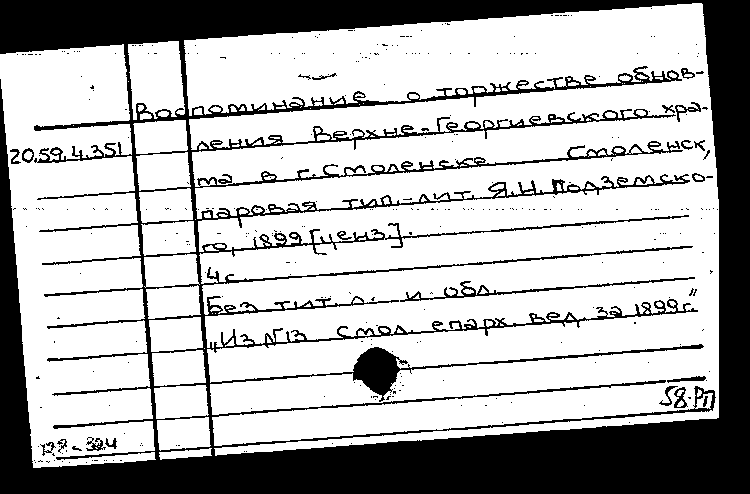 Воспоминание о торжестве обнов-
20.59.4.351
ления Верхне-Георгиевского хра-
ма в г. Смоленске. Смоленск,
паровая тип.-лит. Я.Н. Подземско-
го, 1899 [ценз.].
4 с.
Без тит. л. и обл.
„Из N13 Смол. епарх. вед. за 1899г."
58.РП